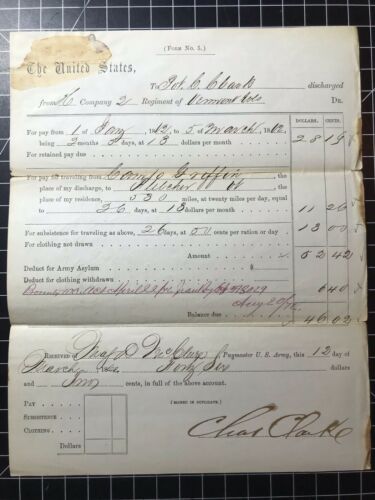 (FORM No. 5.)
The United States,
To Pvt. C. Clark discharged
from H. Company 2 Regiment of Vermont Vols DR.
DOLLARS. CENTS.
For pay from 1 of Jany 1862 to 5 of March 1862
being 2 months 5 days, at 13 dollars per month 28 19
For retained pay due
For pay for traveling from Camp Griffin
the place of my discharge, to Fletcher Vt the
place of my residence, 530 miles, at twenty miles per day, equal
to 26 days, at 13 dollars per month 11 26
For subsistence for traveling as above, 26 days, at 50 cents per ration or day 13 00
For clothing not drawn
Amount 52 42
Deduct for Army Asylum
Deduct for clothing withdrawn
640
Aug 20/
Balance due 46 02
RECEIVED of Maj. D McClure Paymaster U. S. Army, this 12 day of
March Forty Six dollars
and Two cents, in full of the above account.
PAY
SUBSISTENCE
CLOTHING
Dollars
(SIGNED IN DUPLICATE.)
Chas Clarke